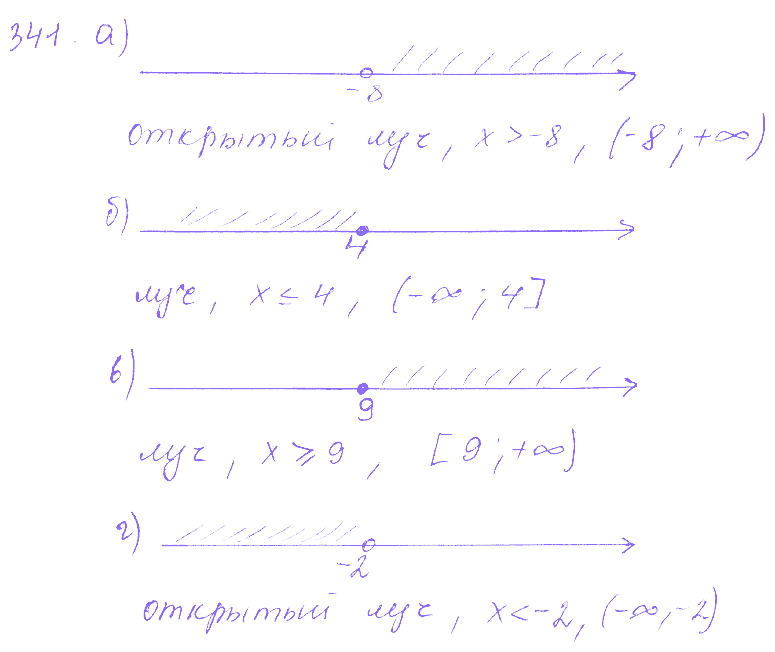 341. а)
-8
открытый луч, x > -8, (-8; +∞)
б)
4
луч, x ≤ 4, (-∞; 4]
в)
9
луч, x ⩾ 9, [9; +∞)
г)
-2
открытый луч, x < -2, (-∞; -2)